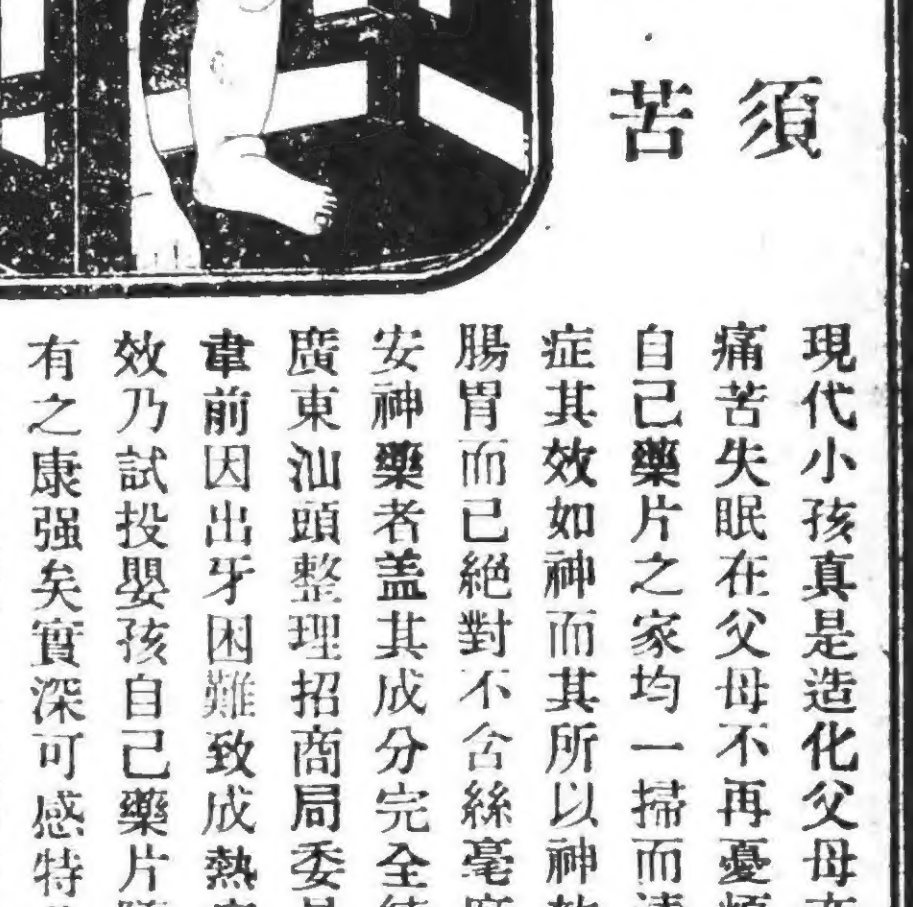 須
苦
現代小孩真是造化父母
痛苦失眠在父母不再憂煩
自己藥片之家均一掃而
症其效如神而其所以神效
腸胃而已絕對不含絲毫
安神藥者蓋其成分完全
廣東汕頭整理招商局委
韋前因出牙困難致成熱
效乃試投嬰孩自己藥片
有之康强矣實深可感特